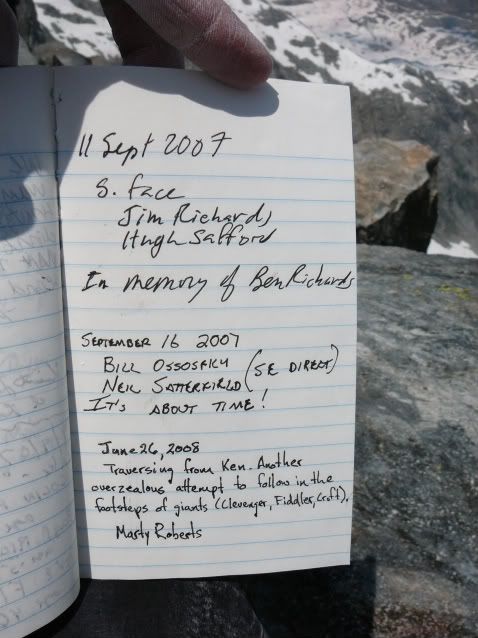 11 Sept 2007
S. face
Jim Richards
Hugh Safford
In memory of Ben Richards
SEPTEMBER 16 2007
BILL OSSOFSKY (SE DIRECT)
NEIL SATTERFIELD
IT'S ABOUT TIME!
June 26, 2008
Traversing from Ken. Another
overzealous attempt to follow in the
footsteps of giants (Clevenger, Fiddler, Croft).
Marty Roberts